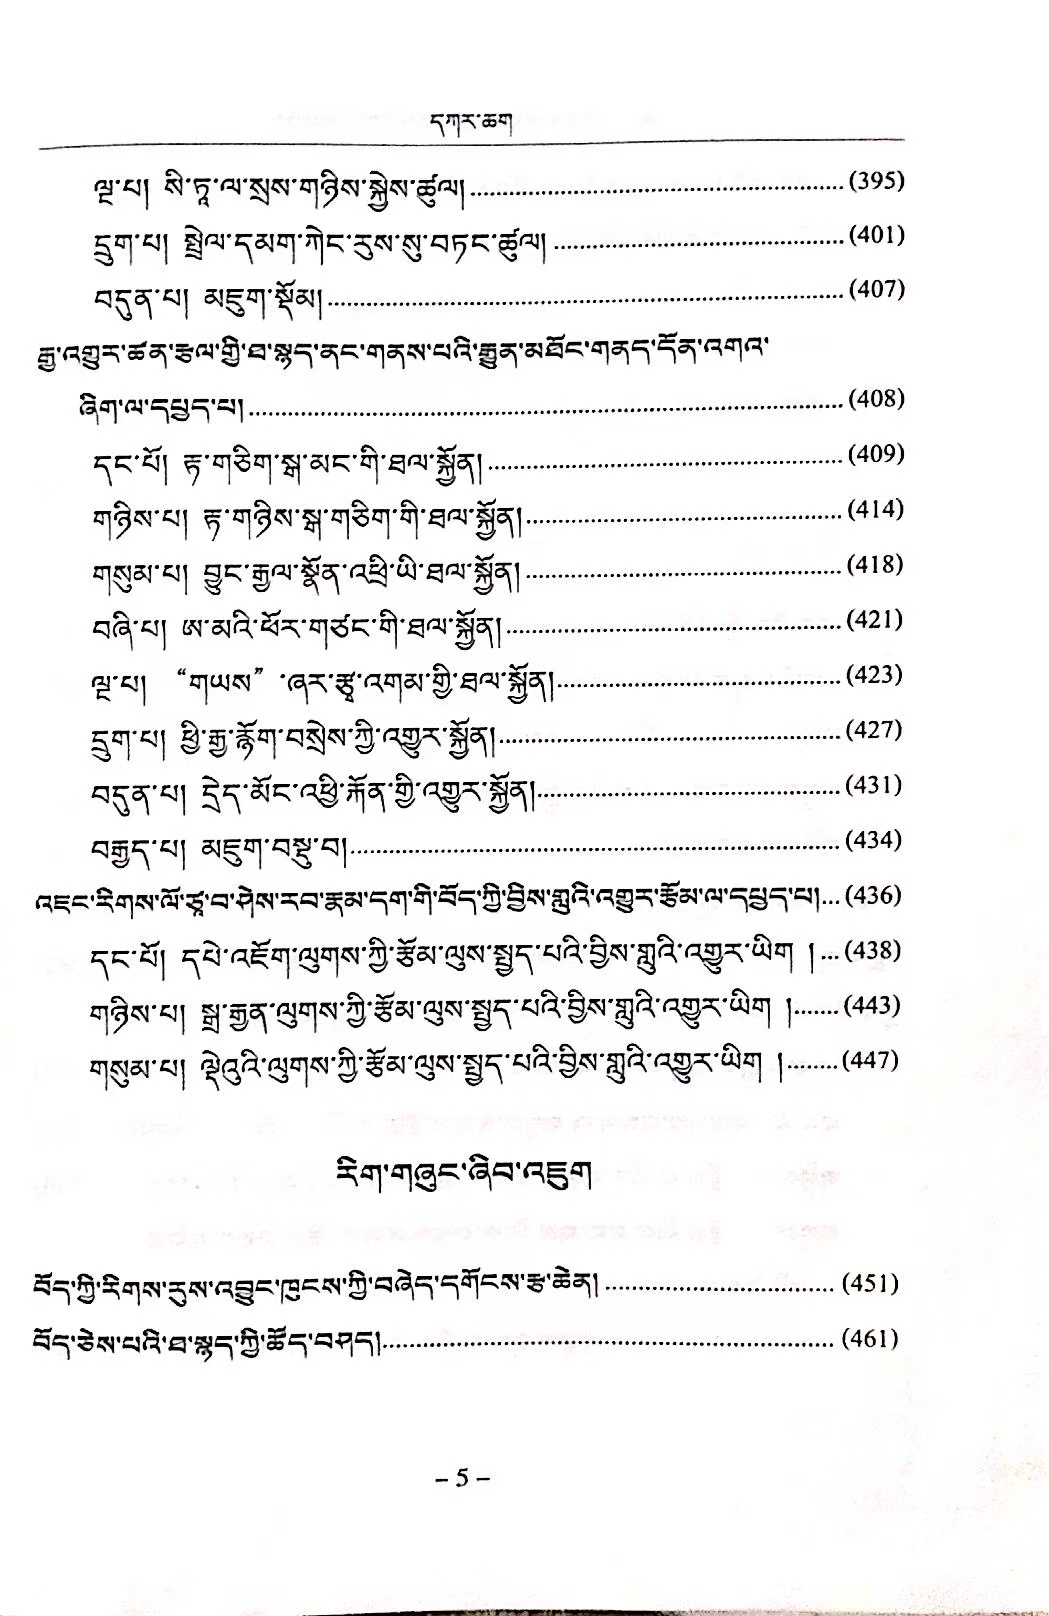 དཀར་ཆག
ལྔ་པ། སི་ཏཱ་ལ་སྲས་གཉིས་སྐྱེས་ཚུལ།...............(395)
དྲུག་པ། སྤྲེལ་དམག་ཀེང་རུས་སུ་བཏང་ཚུལ།...............(401)
བདུན་པ། མཇུག་སྡོམ།...............(407)
རྒྱ་འགྱུར་ཚན་རྩལ་གྱི་ཐ་སྙད་ནང་གནས་པའི་རྒྱུན་མཐོང་གནད་དོན་འགའ་
ཞིག་ལ་དཔྱད་པ།...............(408)
དང་པོ། རྟ་གཅིག་སྒ་མང་གི་ཐལ་སྐྱོན།...............(409)
གཉིས་པ། རྟ་གཉིས་སྒ་གཅིག་གི་ཐལ་སྐྱོན།...............(414)
གསུམ་པ། བྱུང་རྒྱལ་སྣོན་འཕྲི་ཡི་ཐལ་སྐྱོན།...............(418)
བཞི་པ། ཨ་མའི་ཕོར་གཙང་གི་ཐལ་སྐྱོན།...............(421)
ལྔ་པ། “གཡས” ་ཞར་རྩྭ་འགམ་གྱི་ཐལ་སྐྱོན།...............(423)
དྲུག་པ། ཕྱི་རྒྱ་རྙོག་བསྲེས་ཀྱི་འགྱུར་སྐྱོན།...............(427)
བདུན་པ། དྲེད་མོང་འཕྱི་རྐོན་གྱི་འགྱུར་སྐྱོན།...............(431)
བརྒྱད་པ། མཇུག་བསྡུ་བ།...............(434)
འཇང་རིགས་ལོ་ཙཱ་བ་ཤེས་རབ་རྣམ་དག་གི་བོད་ཀྱི་བྱིས་གླུའི་འགྱུར་རྩོམ་ལ་དཔྱད་པ།...(436)
དང་པོ། དཔེ་འཇོག་ལུགས་ཀྱི་རྩོམ་ལུས་སྤྱད་པའི་བྱིས་གླུའི་འགྱུར་ཡིག །...(438)
གཉིས་པ། སྒྲ་རྒྱན་ལུགས་ཀྱི་རྩོམ་ལུས་སྤྱད་པའི་བྱིས་གླུའི་འགྱུར་ཡིག །.......(443)
གསུམ་པ། ལྡེའུའི་ལུགས་ཀྱི་རྩོམ་ལུས་སྤྱད་པའི་བྱིས་གླུའི་འགྱུར་ཡིག །........(447)
རིག་གཞུང་ཞིབ་འཇུག
བོད་ཀྱི་རིགས་རུས་འབྱུང་ཁུངས་ཀྱི་བཞེད་དགོངས་རྩ་ཆེན།...............(451)
བོད་ཅེས་པའི་ཐ་སྙད་ཀྱི་ཚོད་བཤད།...............(461)
– 5 –